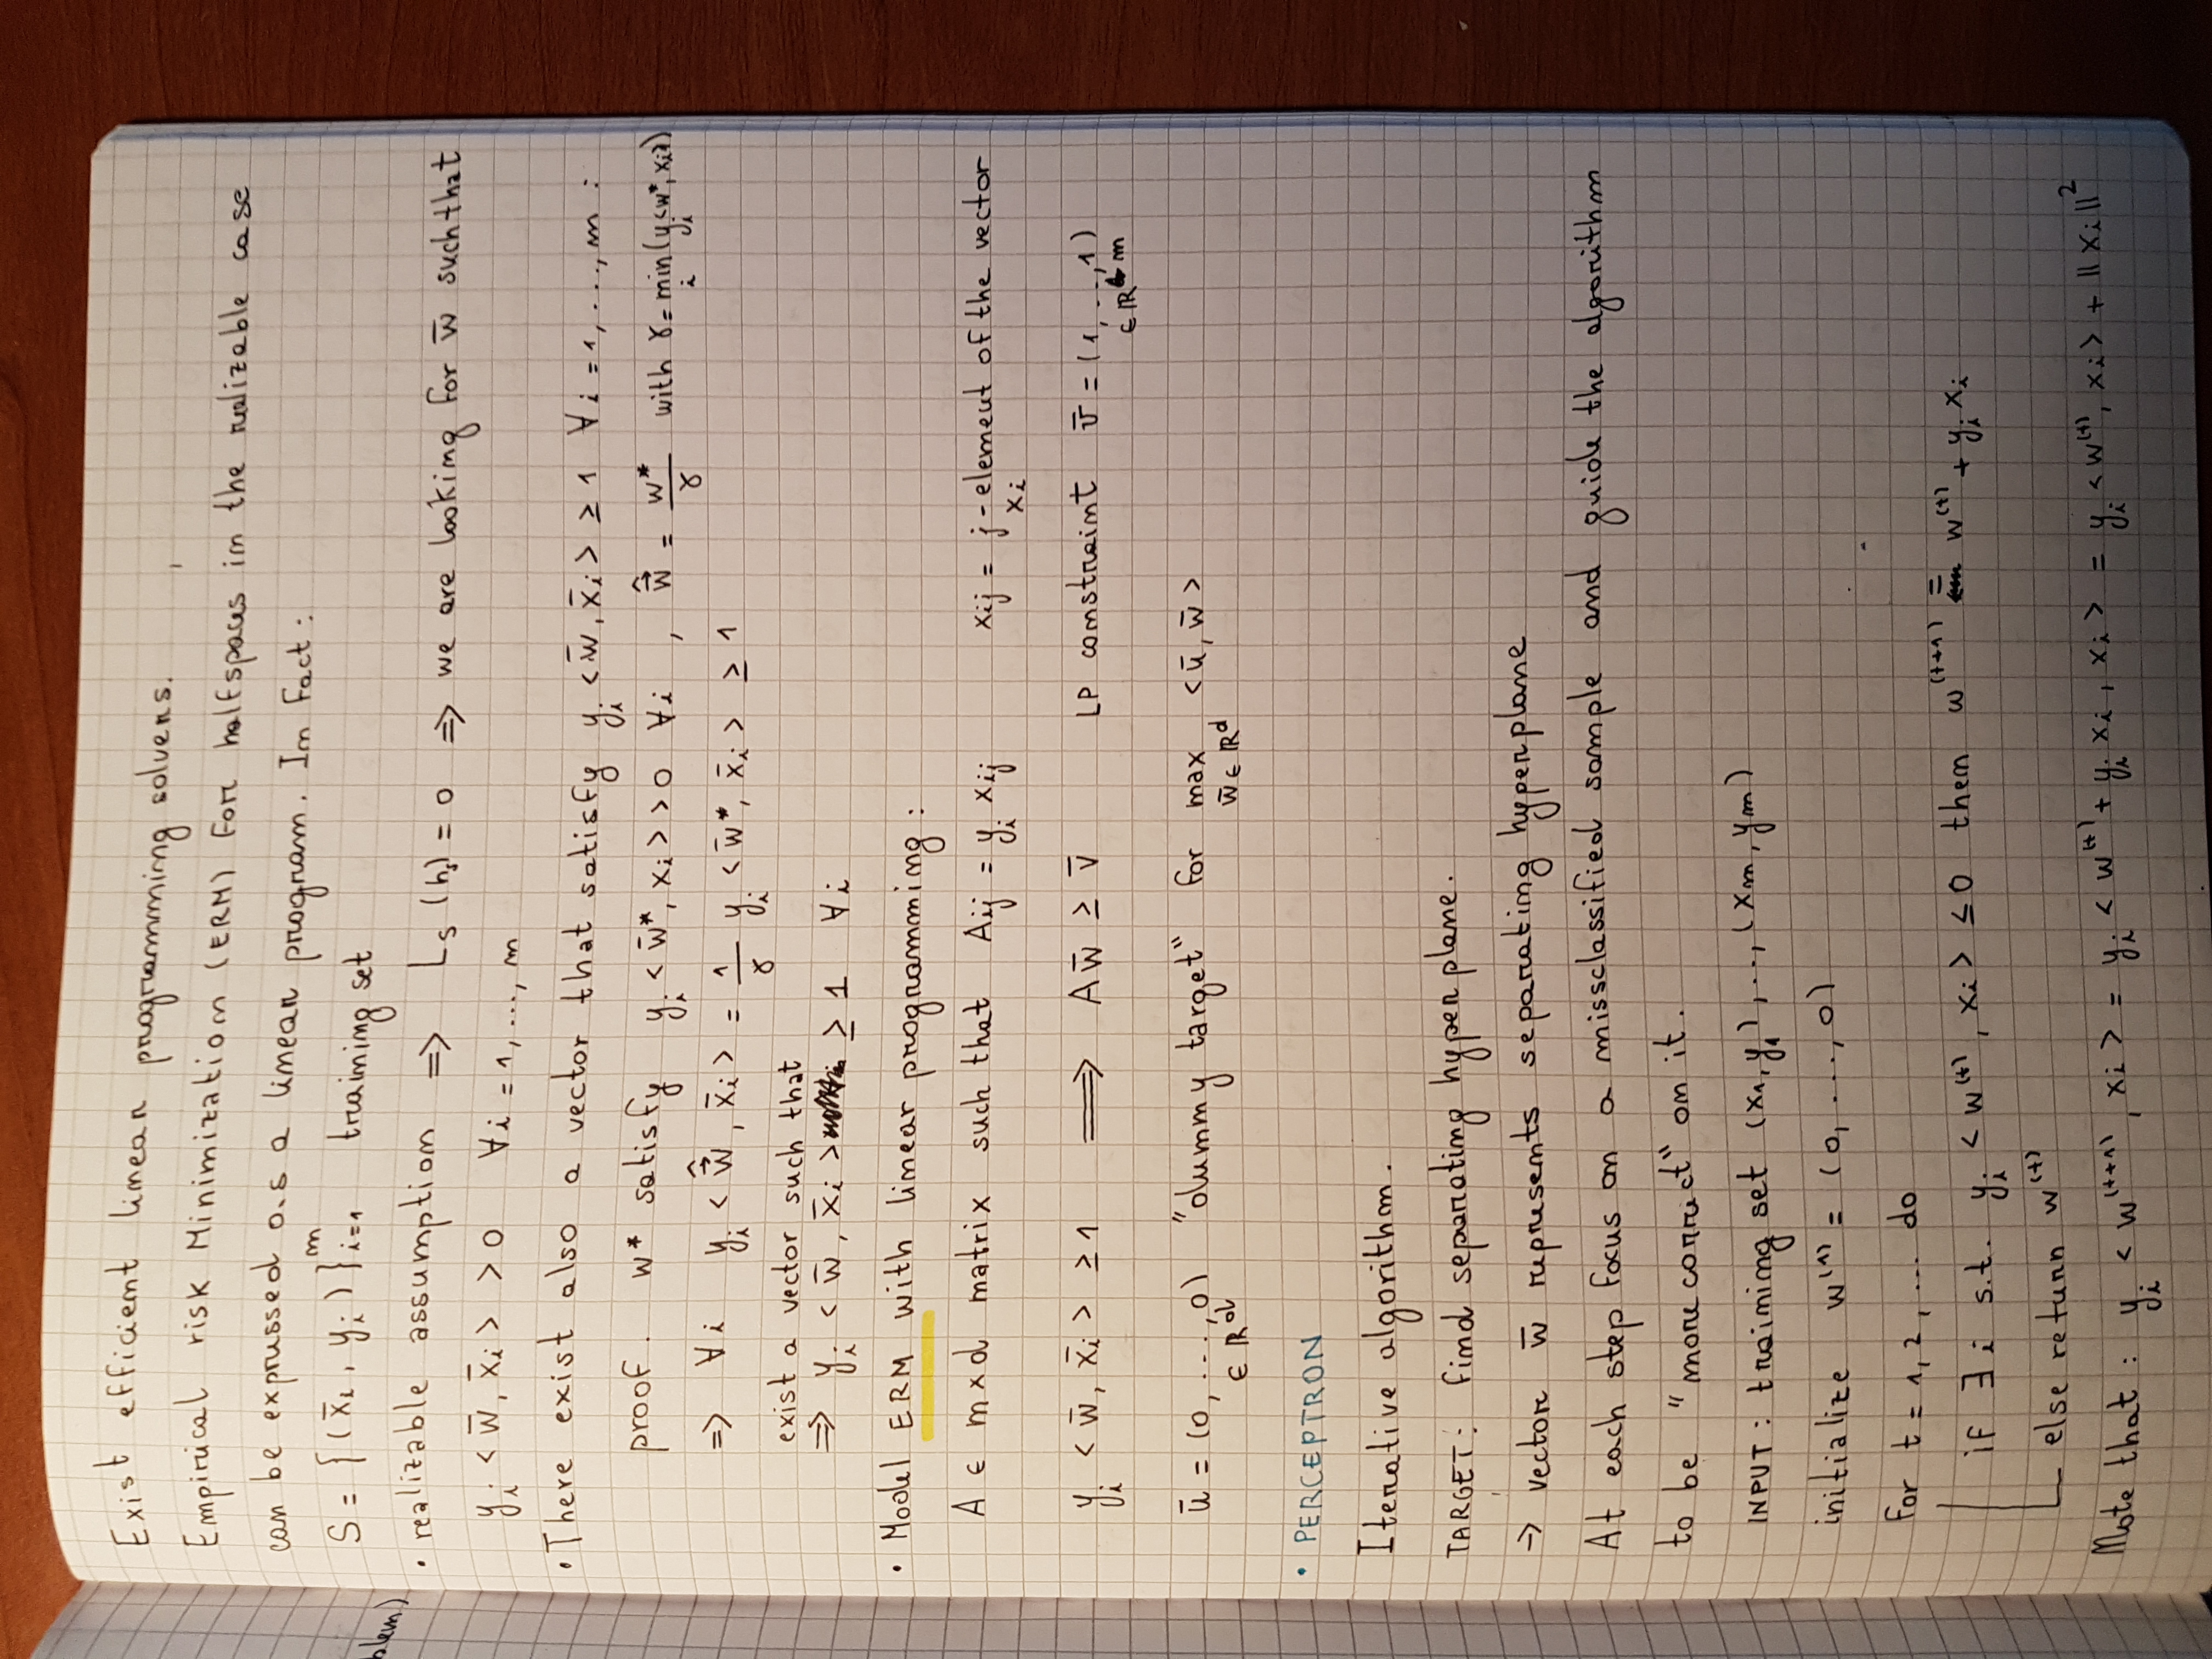 Exist efficient linear programming solvers.
Empirical risk Minimization (ERM) for halfspaces in the realizable case
can be expressed as a linear program. In fact:
S = {(x̄ᵢ, yᵢ)}ᵢ₌₁ᵐ training set
• realizable assumption ⇒ Lₛ(hₛ) = 0 ⇒ we are looking for w̄ such that
yᵢ <w̄, x̄ᵢ> > 0 ∀i = 1, ..., m
• There exist also a vector that satisfy yᵢ <w̄, x̄ᵢ> ≥ 1 ∀i = 1, ..., m :
proof. w* satisfy yᵢ <w̄*, xᵢ> > 0 ∀i , ŵ = w*/γ with γ = min_i (yᵢ<w*, xᵢ>)
⇒ ∀i yᵢ <ŵ, x̄ᵢ> = 1/γ yᵢ <w̄*, x̄ᵢ> ≥ 1
exist a vector such that
⇒ yᵢ <w̄, x̄ᵢ> ≥ 1 ∀i
• Model ERM with linear programming:
A ∈ m×d matrix such that Aij = yᵢ xij xij = j-element of the vector
xᵢ
yᵢ <w̄, x̄ᵢ> ≥ 1 ⟹ Aw̄ ≥ v̄ LP constraint v̄ = (1, ..., 1)
∈ ℝᵐ
ū = (0, ..., 0) "dummy target" for max <ū, w̄>
∈ ℝᵈ w̄ ∈ ℝᵈ
• PERCEPTRON
Iterative algorithm.
TARGET: find separating hyperplane.
→ vector w̄ represents separating hyperplane
At each step focus on a missclassified sample and guide the algorithm
to be "more correct" on it.
INPUT: training set (x₁, y₁), ..., (xm, ym)
initialize w⁽¹⁾ = (0, ..., 0)
for t = 1, 2, ... do
if ∃i s.t. yᵢ <w⁽ᵗ⁾, xᵢ> ≤ 0 then w⁽ᵗ⁺¹⁾ = w⁽ᵗ⁾ + yᵢ xᵢ
else return w⁽ᵗ⁾
Note that: yᵢ <w⁽ᵗ⁺¹⁾, xᵢ> = yᵢ <w⁽ᵗ⁾ + yᵢ xᵢ, xᵢ> = yᵢ <w⁽ᵗ⁾, xᵢ> + ||xᵢ||²
blem)